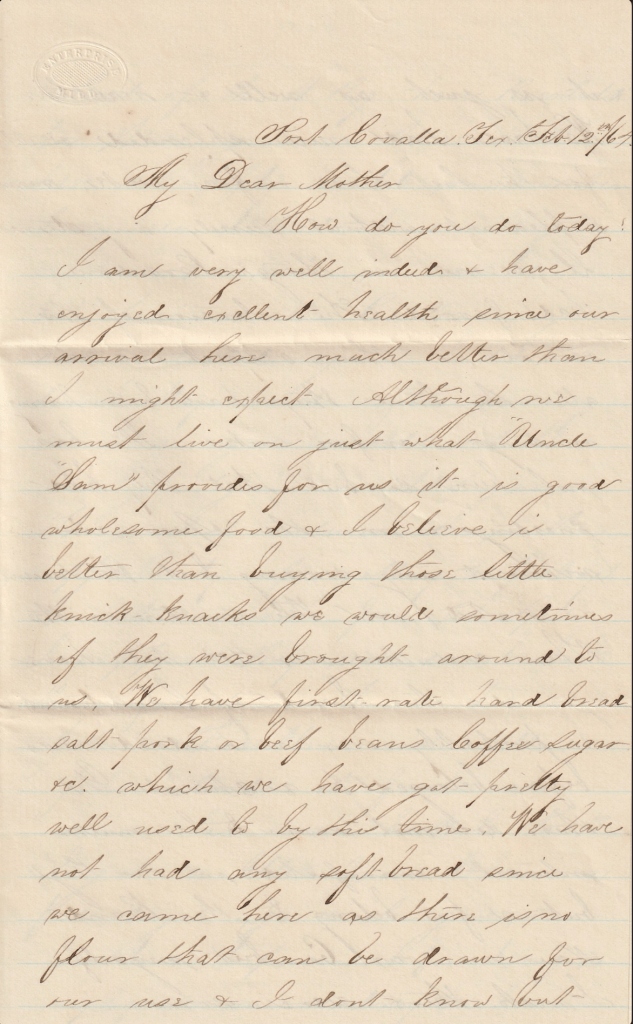 Port Cavalla. Tex. Feb. 12th/64.
My Dear Mother
How do you do today?
I am very well indeed & have
enjoyed excellent health since our
arrival here much better than
I might expect. Although we
must live on just what "Uncle
"Sam" provides for us it is good
wholesome food & I believe is
better than buying those little
knick-knacks we would sometimes
if they were brought around to
us. We have first-rate hard bread
salt pork or beef beans Coffee Sugar
&c. which we have got pretty
well used to by this time. We have
not had any soft bread since
we came here as there is no
flour that can be drawn for
our use & I dont know but